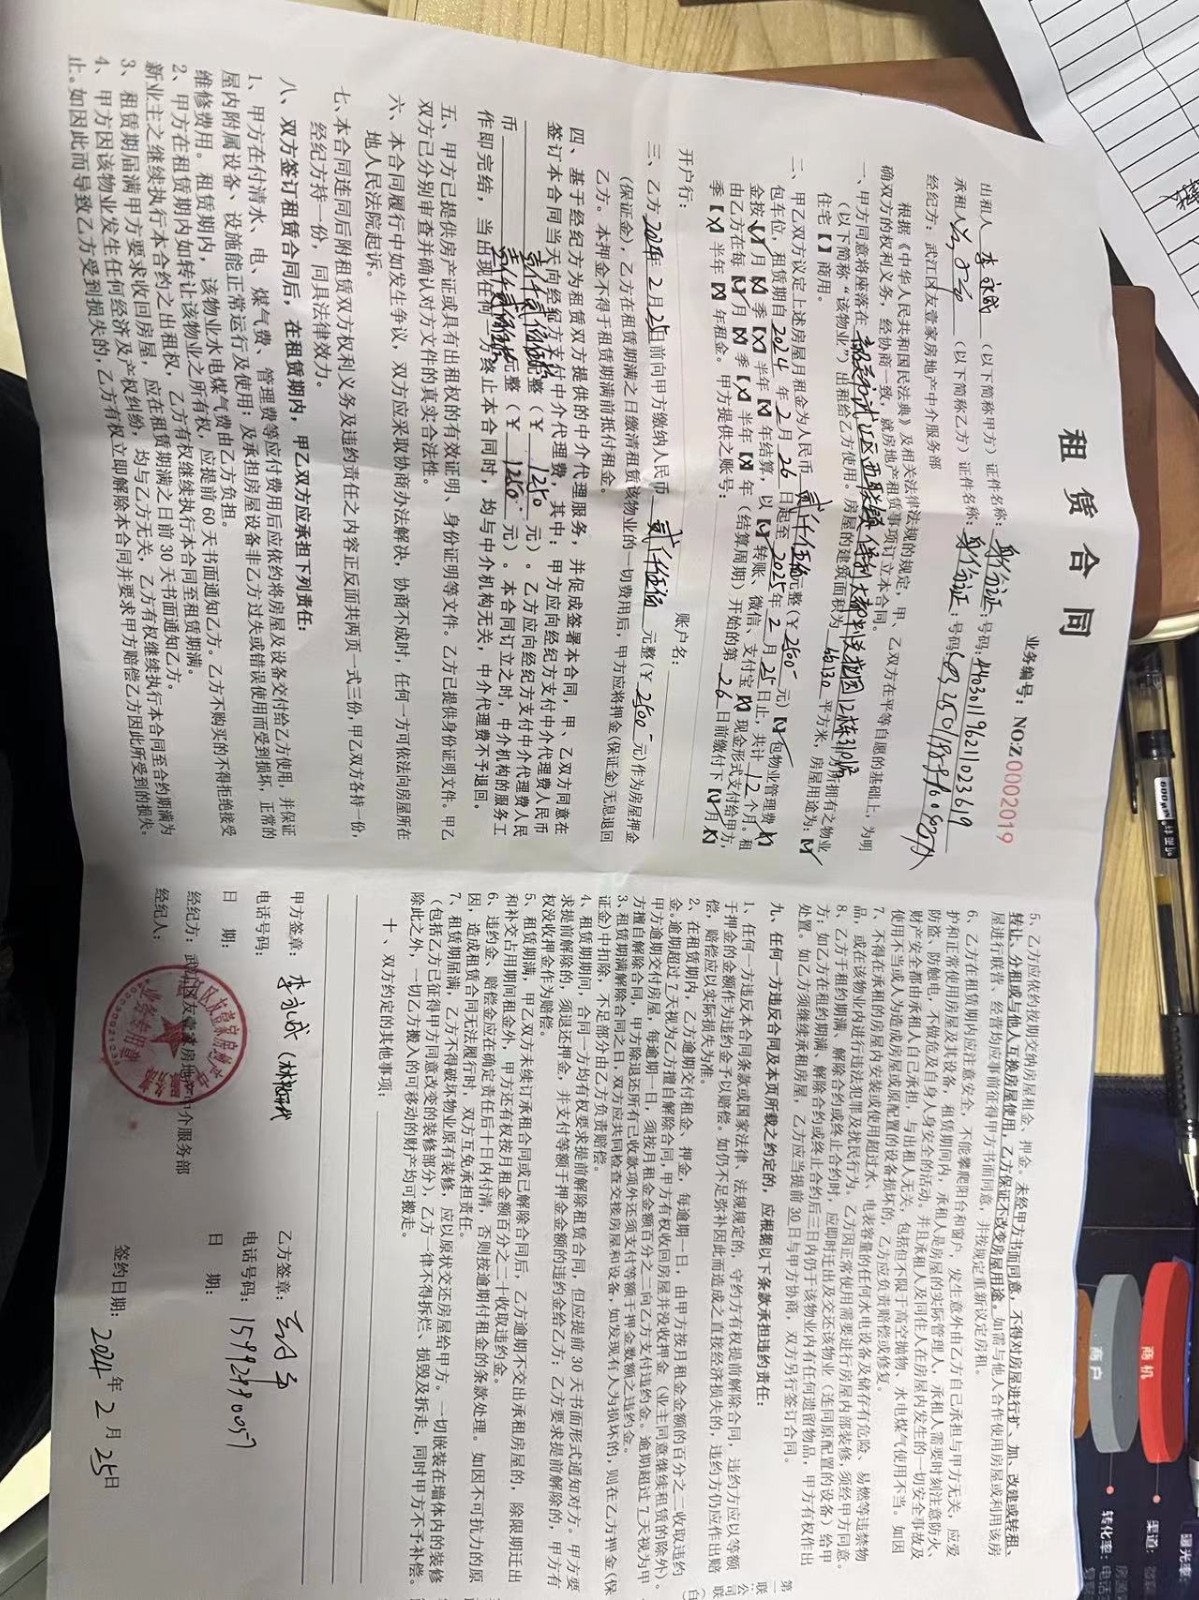 租 赁 合 同
业务编号：NO:Z0002019
出租人 李永成 （以下简称甲方）证件名称：身份证 号码：440301196211023619
承租人 （以下简称乙方）证件名称：身份证 号码
经纪方：武江区友壹家房地产中介服务部
根据《中华人民共和国民法典》及相关法律法规的规定，甲、乙双方在平等自愿的基础上，为明
确双方的权利义务，经协商一致，就房地产租赁事项订立本合同。
一、甲方同意将座落在 12栋3101房 所拥有之物业
（以下简称“该物业”）出租给乙方使用。房屋的建筑面积为 平方米，房屋用途为：【√】
住宅【 】商用。
二、甲乙双方议定上述房屋月租金为人民币 贰仟伍佰 元整（￥2500 元）【√】包物业管理费【X】
包车位，租赁期自 2024 年 2 月 26 日起至 2025 年 2 月 25 日止，共计 12 个月。租
金按【√】月【X】季【X】半年【X】年结算，以【√】转账、微信、支付宝【X】现金形式支付给甲方，
由乙方在每【√】月【X】季【X】半年【X】年（结算周期）开始的第 26 日前缴付下【√】月【X】
季【X】半年【X】年租金。甲方提供之账号：
开户行： 账户名：
三、乙方 2024 年 2 月 25 日前向甲方缴纳人民币 贰仟伍佰 元整（￥2500 元）作为房屋押金
（保证金），乙方在租赁期满之日缴清租赁该物业的一切费用后，甲方应将押金（保证金）无息退回
乙方。本押金不得于租赁期满前抵付租金。
四、基于经纪方为租赁双方提供的中介代理服务，并促成签署本合同，甲、乙双方同意在
签订本合同当天向经纪方支付中介代理费，其中：甲方应向经纪方支付中介代理费人民币
壹仟贰佰伍 元整（￥ 1250 元）。乙方应向经纪方支付中介代理费人民
币 壹仟贰佰伍 元整（￥ 1250 元）。本合同订立之时，中介机构的服务工
作即完结，当出现任何一方终止本合同时，均与中介机构无关，中介代理费不予退回。
五、甲方已提供房产证或具有出租权的有效证明、身份证明等文件。乙方已提供身份证明文件。甲乙
双方已分别审查并确认对方文件的真实合法性。
六、本合同履行中如发生争议，双方应采取协商办法解决，协商不成时，任何一方可依法向房屋所在
地人民法院起诉。
七、本合同连同后附租赁双方权利义务及违约责任之内容正反面共两页一式三份，甲乙双方各持一份，
经纪方持一份，同具法律效力。
八、双方签订租赁合同后，在租赁期内，甲乙双方应承担下列责任：
1、甲方在付清水、电、煤气费、管理费等应付费用后应依约将房屋及设备交付给乙方使用，并保证
屋内附属设备、设施能正常运行及使用；及承担房屋设备非乙方过失或错误使用而受到损坏，正常的
维修费用。租赁期内，该物业水电煤气费由乙方负担。
2、甲方在租赁期内如转让该物业之所有权，应提前 60 天书面通知乙方。乙方不购买的不得拒绝接受
新业主之继续执行本合约之出租权，乙方有权继续执行本合同至租赁期满。
3、租赁期届满甲方要求收回房屋，应在租赁期满之日前 30 天书面通知乙方。
4、甲方因该物业发生任何经济及产权纠纷，均与乙方无关，乙方有权继续执行本合同至合约期满为
止。如因此而导致乙方受到损失的，乙方有权立即解除本合同并要求甲方赔偿乙方因此所受到的损失。
5、乙方应依约按期交纳房屋租金、押金。未经甲方书面同意，不得对房屋进行扩、加、改建或转租、
转让、分租或与他人互换房屋使用，乙方保证不改变房屋用途。如需与他人合作使用房屋或利用该房
屋进行联营、经营均应事前征得甲方书面同意，并按规定重新议定房租。
6、乙方在租赁期内应注意安全，不能攀爬阳台和窗户，发生意外由乙方自己承担与甲方无关，应爱
护和正常使用房屋及其设备，租赁期间内，承租人是房屋的实际管理人，承租人需要时刻注意防火、
防盗、防触电，不做危及自身人身安全的活动。并且承租人及同住人在房屋内发生的一切安全事故及
财产安全都由承租人自己承担，与出租人无关，包括但不限于高空抛物、水电煤气使用不当。如因
使用不当或人为造成房屋或原配置的设备损坏的，乙方应负责赔偿或修复。
7、不得在承租的房屋内安装或使用超过水、电表容量的任何水电设备及储存有危险、易燃等违禁物
品，或在该物业内进行违法犯罪及扰民行为。乙方因正常使用需要进行房屋内部装修，须经甲方同意。
8、乙方于租约期满、解除合约或终止合约时，应即时迁出及交还该物业（连同原配置的设备）给甲
方；如乙方在租约期满、解除合约或终止合约后三日内仍于该物业内有任何遗留物品，甲方有权作出
处置。如乙方须继续承租房屋，乙方应当提前 30 日与甲方协商，双方另行签订合同。
九、任何一方违反合同及本页所载之约定的，应根据以下条款承担违约责任：
1、任何一方违反本合同条款或国家法律、法规规定的，守约方有权提前解除合同，违约方应以等额
于押金的金额作为违约金予以赔偿。如仍不足弥补因此而造成之直接经济损失的，违约方仍应作出赔
偿，赔偿应以实际损失为准。
2、在租赁期内，乙方逾期交付租金、押金，每逾期一日，由甲方按月租金金额的百分之二收取违约
金。逾期超过7天视为乙方擅自解除合同，甲方有权收回房屋并没收押金（业主同意继续租赁的除外）。
甲方逾期交付房屋，每逾期一日，须按月租金金额百分之二向乙方支付违约金。逾期超过7天视为甲
方擅自解除合同，甲方除退还所有已收款项外还须支付等额于押金数额之违约金。
3、租赁期满解除合同之日，双方应共同检查交接房屋和设备，如发现有人为损坏的，则在乙方押金（保
证金）中扣除，不足部分由乙方负责赔偿。
4、租赁期期间，合同一方均有权要求提前解除租赁合同，但应提前 30 天书面形式通知对方。甲方要
求提前解除的，须退还押金，并支付等额于押金金额的违约金给乙方；乙方要求提前解除的，甲方有
权没收押金作为赔偿。
5、租赁期满，甲乙双方未续订承租合同或已解除合同后，乙方逾期不交出承租房屋的，除限期迁出
和补交占用期间租金外，甲方还有权按月租金额百分之二十收取违约金。
6、违约金、赔偿金应在确定责任后十日内付清，否则按逾期付租金的条款处理。如因不可抗力的原
因，造成租赁合同无法履行时，双方互免承担责任。
7、租赁期届满，乙方不得破坏物业原有装修，应以原状交还房屋给甲方。一切嵌装在墙体内的装修
（包括乙方已征得甲方同意改变的装修部分），乙方一律不得拆烂、损毁及拆走，同时甲方不予补偿。
除此之外，一切乙方搬入的可移动的财产均可搬走。
十、双方约定的其他事项：
甲方签章： 李永成 乙方签章：
电话号码： 电话号码：15992990057
日 期： 日 期：
经纪方：武江区友壹家房地产中介服务部
经纪人： 签约日期：2024 年 2 月 25 日
业务专用章
商机
商户
渠道：
转化率：电话
曝光率：